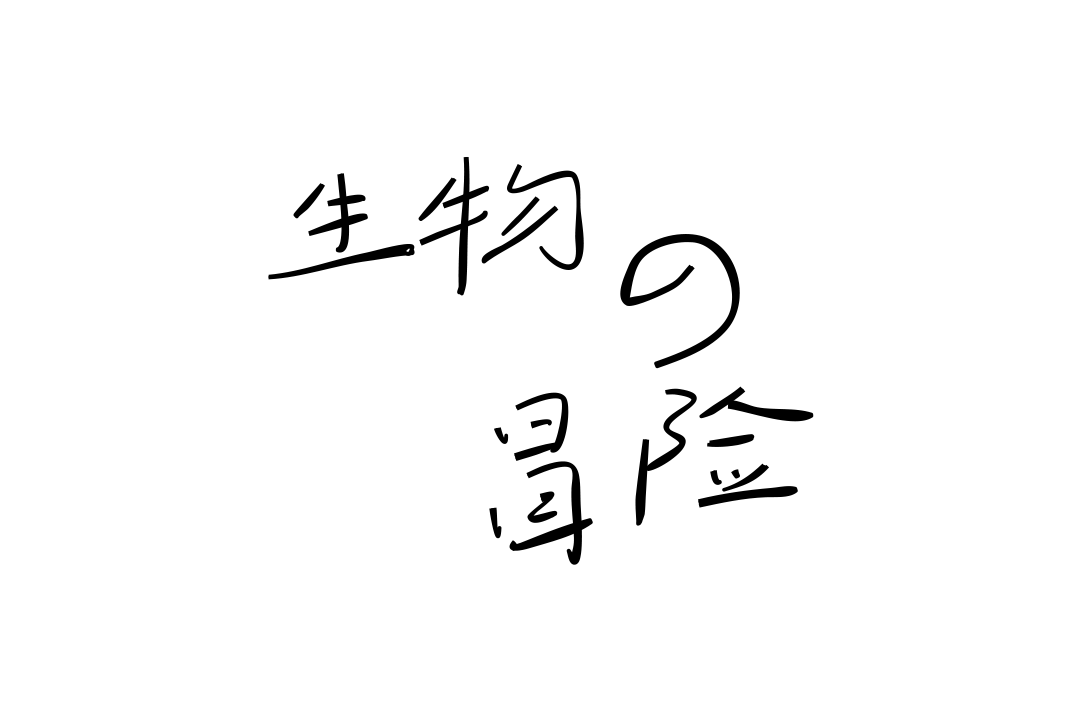 生物の
冒险